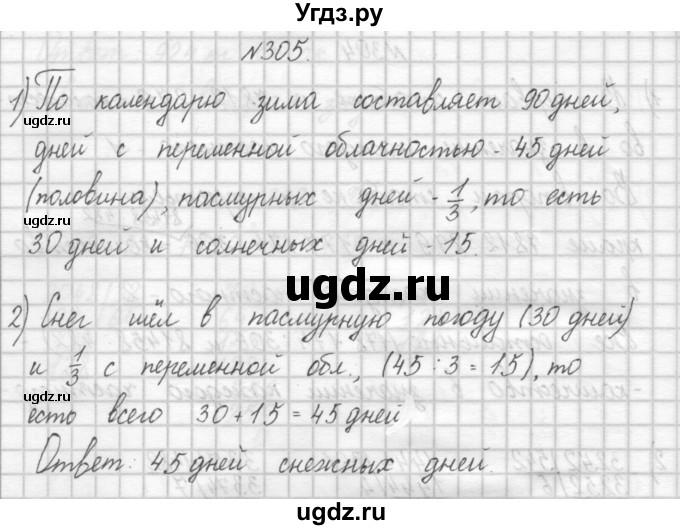 Угдз.ру
№305.
1) По календарю зима составляет 90 дней,
дней с переменной облачностью - 45 дней
(половина), пасмурных дней - 1/3, то есть
30 дней и солнечных дней - 15.
2) Снег шёл в пасмурную погоду (30 дней)
и 1/3 с переменной обл., (45 : 3 = 15), то
есть всего 30 + 15 = 45 дней
Ответ: 45 дней снежных дней.
ugdz.ru
ugdz.ru
ugdz.ru
ugdz.ru